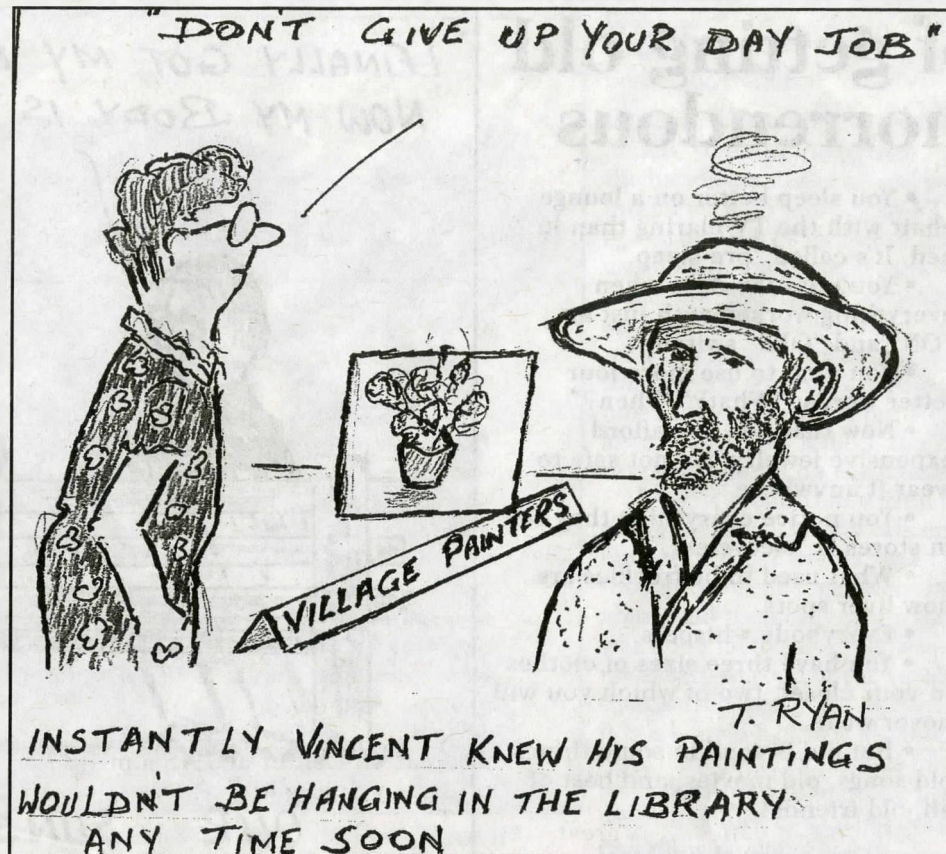 "DON'T GIVE UP YOUR DAY JOB"
VILLAGE PAINTERS
T. RYAN
INSTANTLY VINCENT KNEW HIS PAINTINGS
WOULDN'T BE HANGING IN THE LIBRARY
ANY TIME SOON